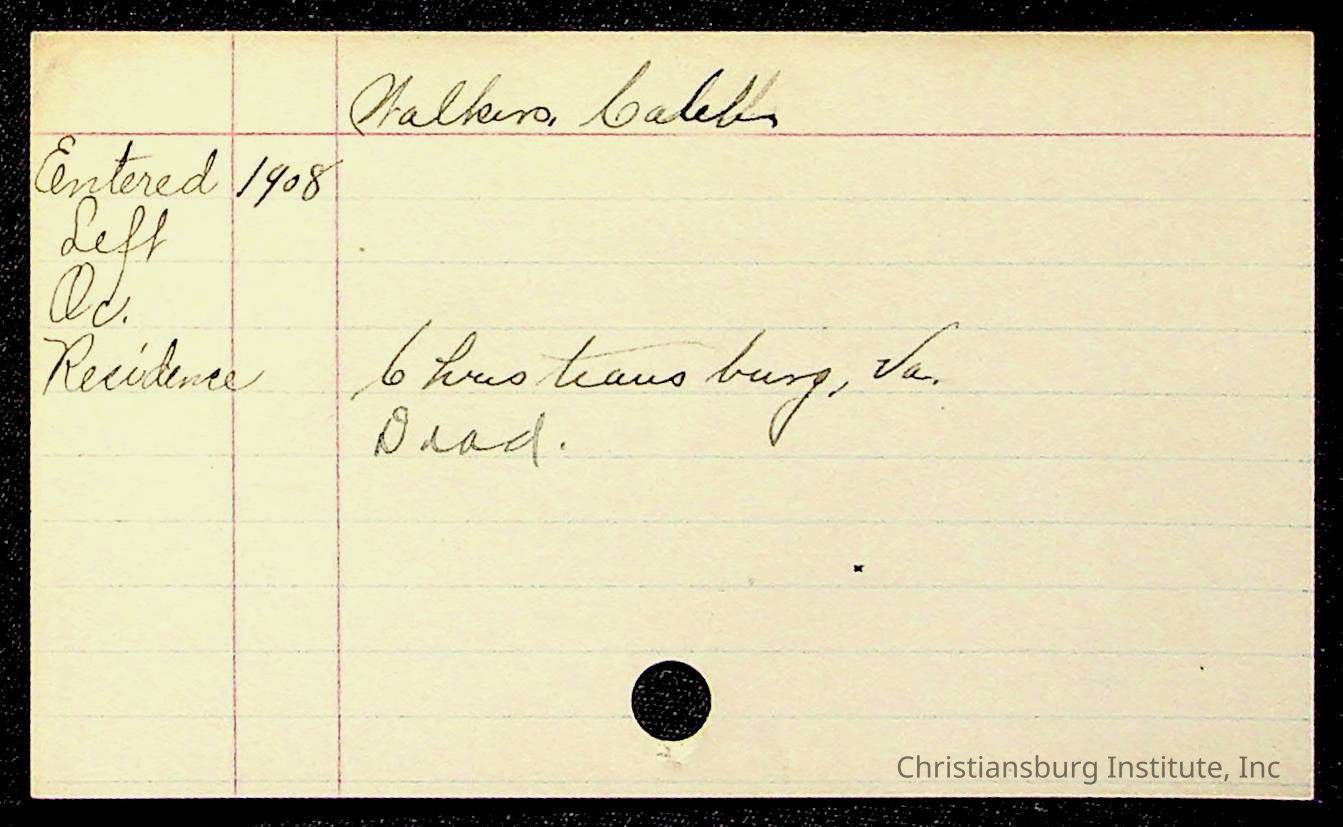 Walkers, Caleb
Entered 1908
Left
Oc.
Residence Christiansburg, Va.
Dead.
Christiansburg Institute, Inc